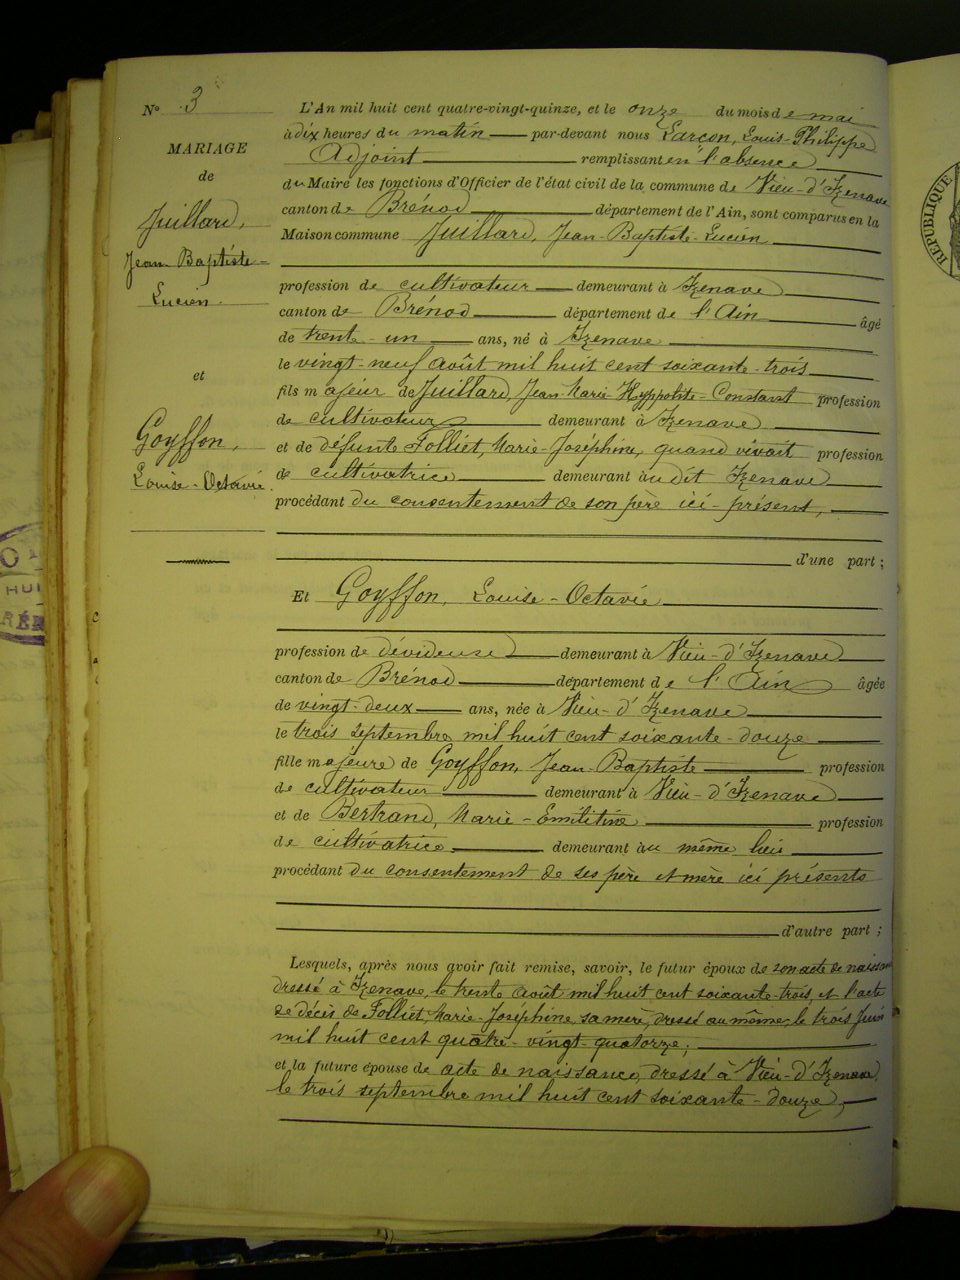 N° 3
MARIAGE
de
Juillard,
Jean-Baptiste-
Lucien.
et
Goyffon,
Louise-Octavie.
L'An mil huit cent quatre-vingt-quinze, et le onze du mois de mai
à dix heures du matin par-devant nous Larçon, Louis-Philippe
Adjoint remplissant en l'absence
du Maire les fonctions d'Officier de l'état civil de la commune de Vieu-d'Izenave
canton de Brénod département de l'Ain, sont comparus en la
Maison commune Juillard, Jean-Baptiste-Lucien
profession de cultivateur demeurant à Izenave
canton de Brénod département de l'Ain âgé
de trente-un ans, né à Izenave
le vingt-neuf août mil huit cent soixante-trois
fils majeur de Juillard, Jean-Marie-Hyppolite-Constant profession
de cultivateur demeurant à Izenave
et de défunte Folliet, Marie-Joséphine, quand vivait profession
de cultivatrice demeurant au dit Izenave
procédant du consentement de son père ici-présent,
d'une part ;
Et Goyffon, Louise-Octavie
profession de dévideuse demeurant à Vieu-d'Izenave
canton de Brénod département de l'Ain âgée
de vingt-deux ans, née à Vieu-d'Izenave
le trois septembre mil huit cent soixante-douze
fille majeure de Goyffon, Jean-Baptiste profession
de cultivateur demeurant à Vieu-d'Izenave
et de Bertrand, Marie- profession
de cultivatrice demeurant au même lieu
procédant du consentement de ses père et mère ici présents
d'autre part ;
Lesquels, après nous avoir fait remise, savoir, le futur époux de son acte de naissance
dressé à Izenave, le trente août mil huit cent soixante-trois, et l'acte
de décès de Folliet, Marie-Joséphine, sa mère, dressé au même, le trois Juin
mil huit cent quatre-vingt-quatorze;
et la future épouse de acte de naissance, dressé à Vieu-d'Izenave,
le trois septembre mil huit cent soixante-douze,
RÉPUBLIQUE